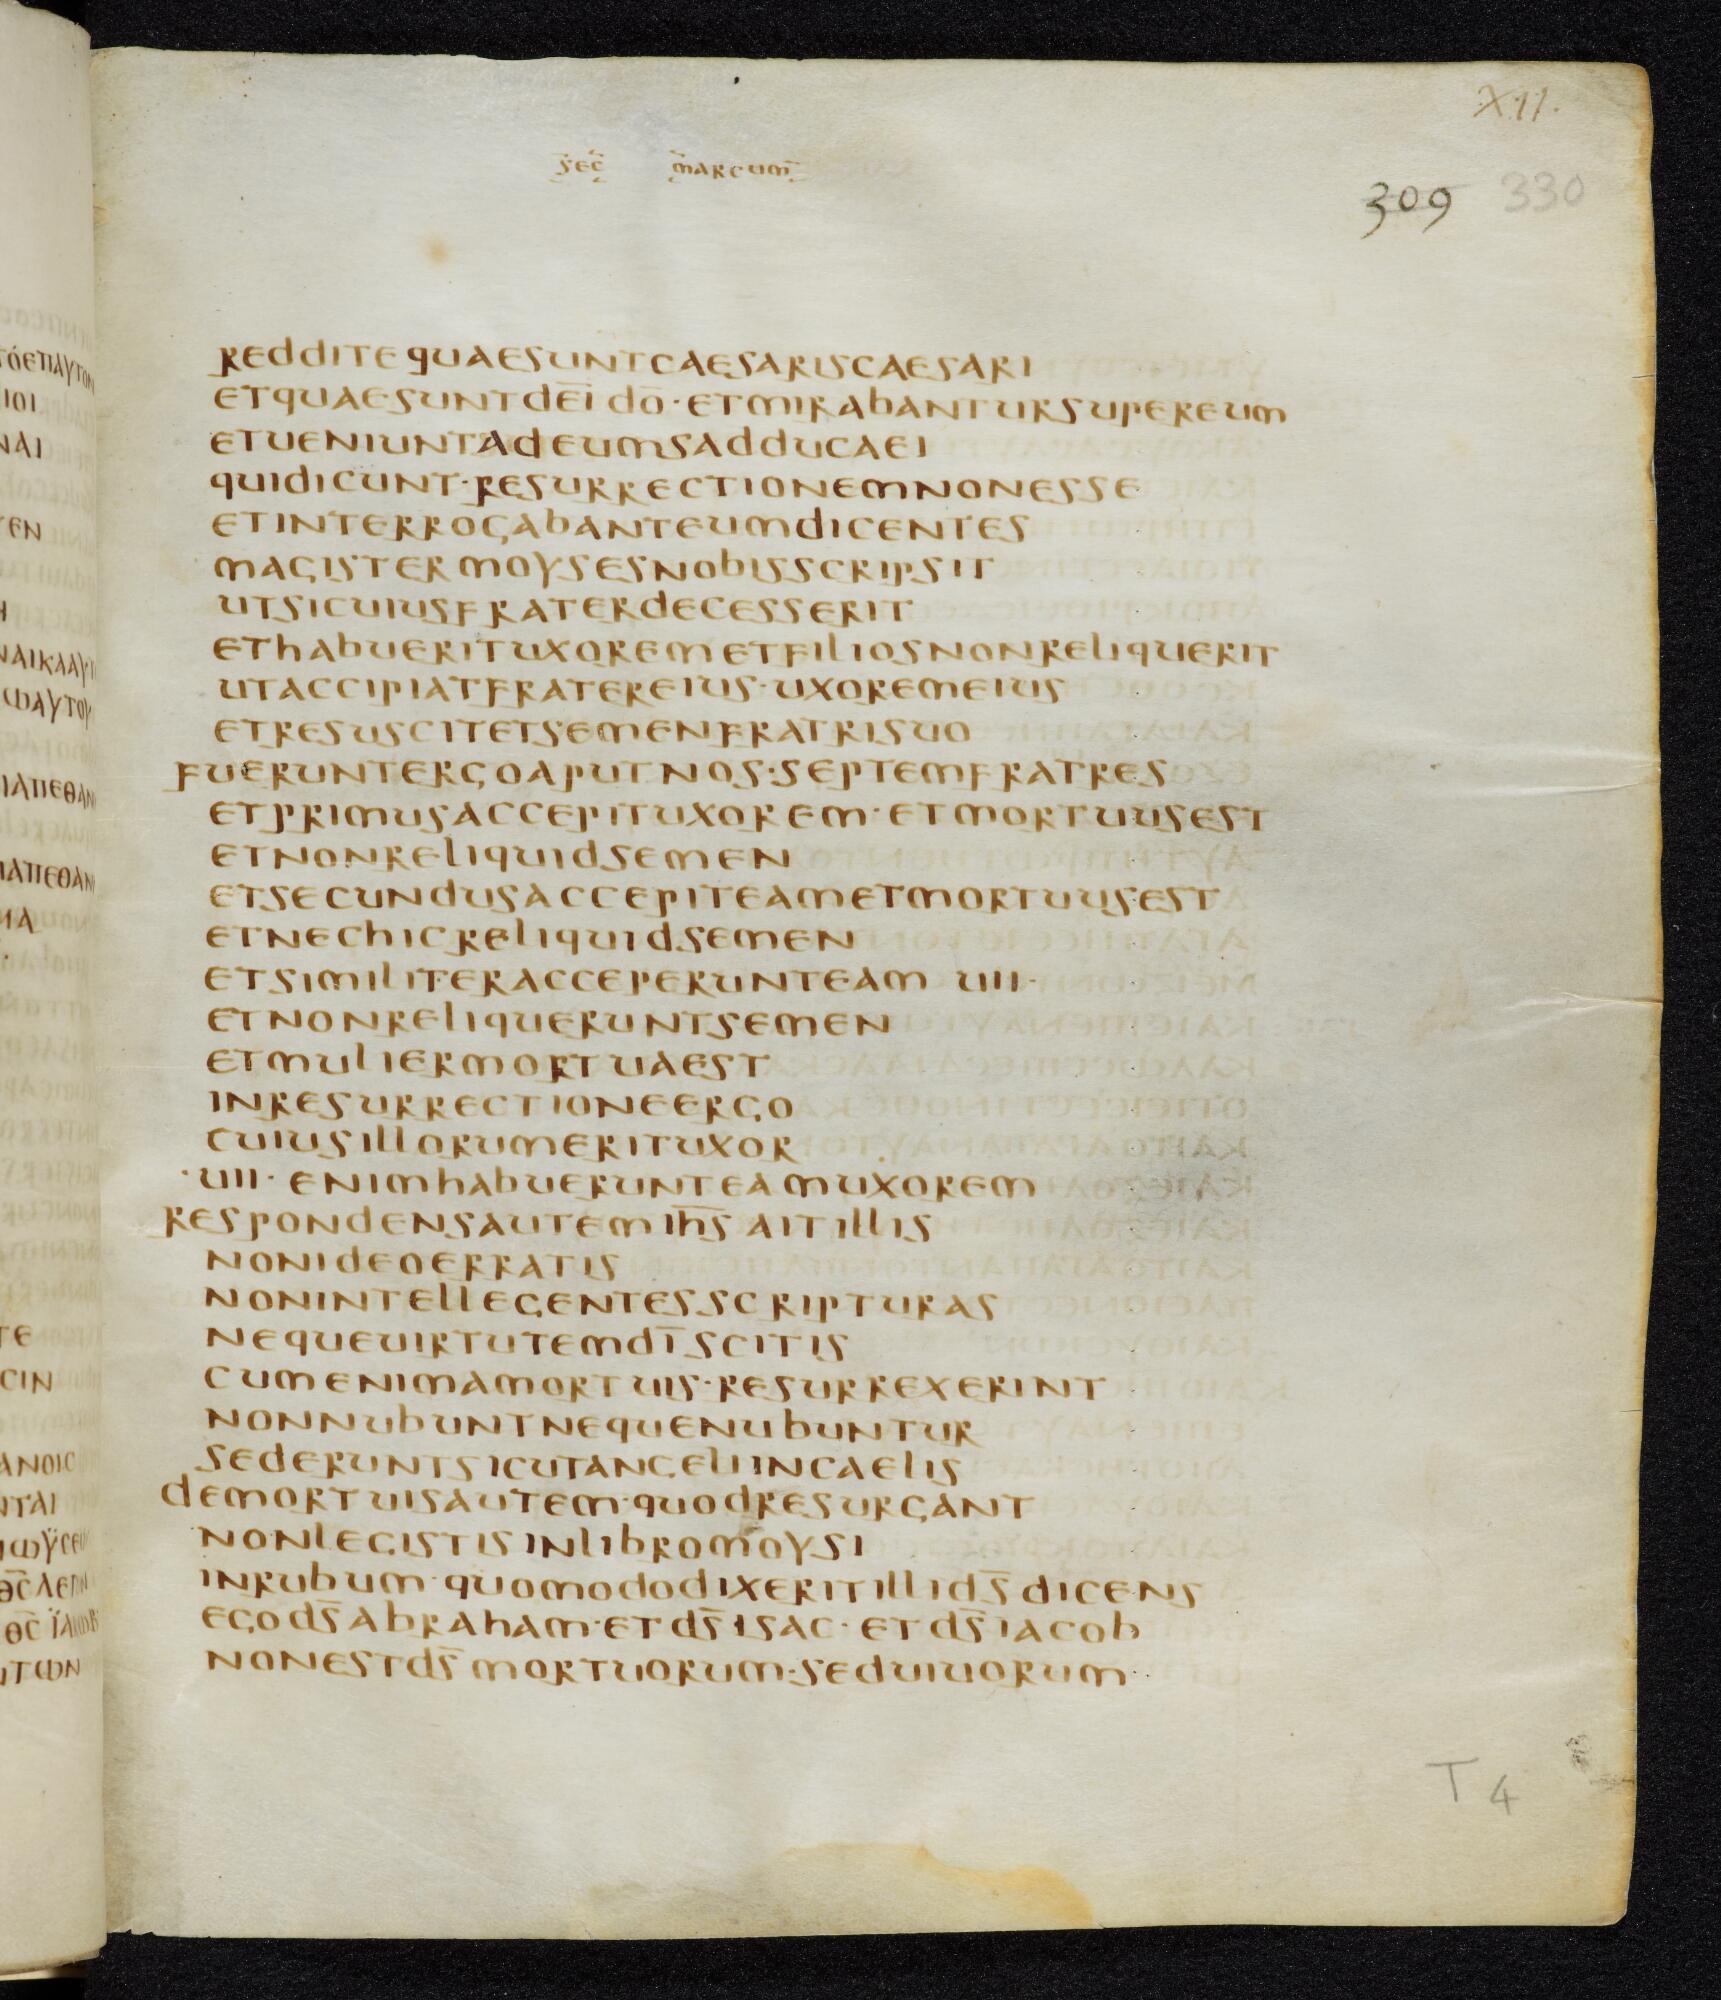 XII.
sec̄ marcum
309 330
REDDITEQUAESUNTCAESARISCAESARI
ETQUAESUNTDE̅I DO̅·ETMIRABANTURSUPEREUM
ETUENIUNTADEUMSADDUCAEI
QUIDICUNT·RESURRECTIONEMNONESSE
ETINTERROGABANTEUMDICENTES
MAGISTERMOYSESNOBISSCRIPSIT
UTSICUIUSFRATERDECESSERIT
ETHABUERITUXOREMETFILIOSNONRELIQUERIT
UTACCIPIATFRATEREIUS·UXOREMEIUS
ETRESUSCITETSEMENFRATRISUO
FUERUNTERGOAPUTNOS·SEPTEMFRATRES
ETPRIMUSACCEPITUXOREM·ETMORTUUSEST
ETNONRELIQUIDSEMEN
ETSECUNDUSACCEPITEAMETMORTUUSEST
ETNECHICRELIQUIDSEMEN
ETSIMILITERACCEPERUNTEAM UII·
ETNONRELIQUERUNTSEMEN
ETMULIERMORTUAEST
INRESURRECTIONEERGO
CUIUSILLORUMERITUXOR
·UII· ENIMHABUERUNTEAMUXOREM
RESPONDENSAUTEMIH̅S̅ AITILLIS
NONIDEOERRATIS
NONINTELLEGENTESSCRIPTURAS
NEQUEUIRTUTEMDI̅SCITIS
CUMENIMAMORTUIS·RESURREXERINT
NONNUBUNTNEQUENUBUNTUR
SEDERUNTSICUTANGELIINCAELIS
DEMORTUISAUTEM·QUODRESURGANT
NONLEGISTISINLIBROMOYSI
INRUBUM·QUOMODODIXERITILLIDS̅ DICENS
EGODS̅ABRAHAM·ETDS̅ISAC·ETDS̅IACOB
NONESTDS̅MORTUORUM·SEDUIUORUM·
T 4